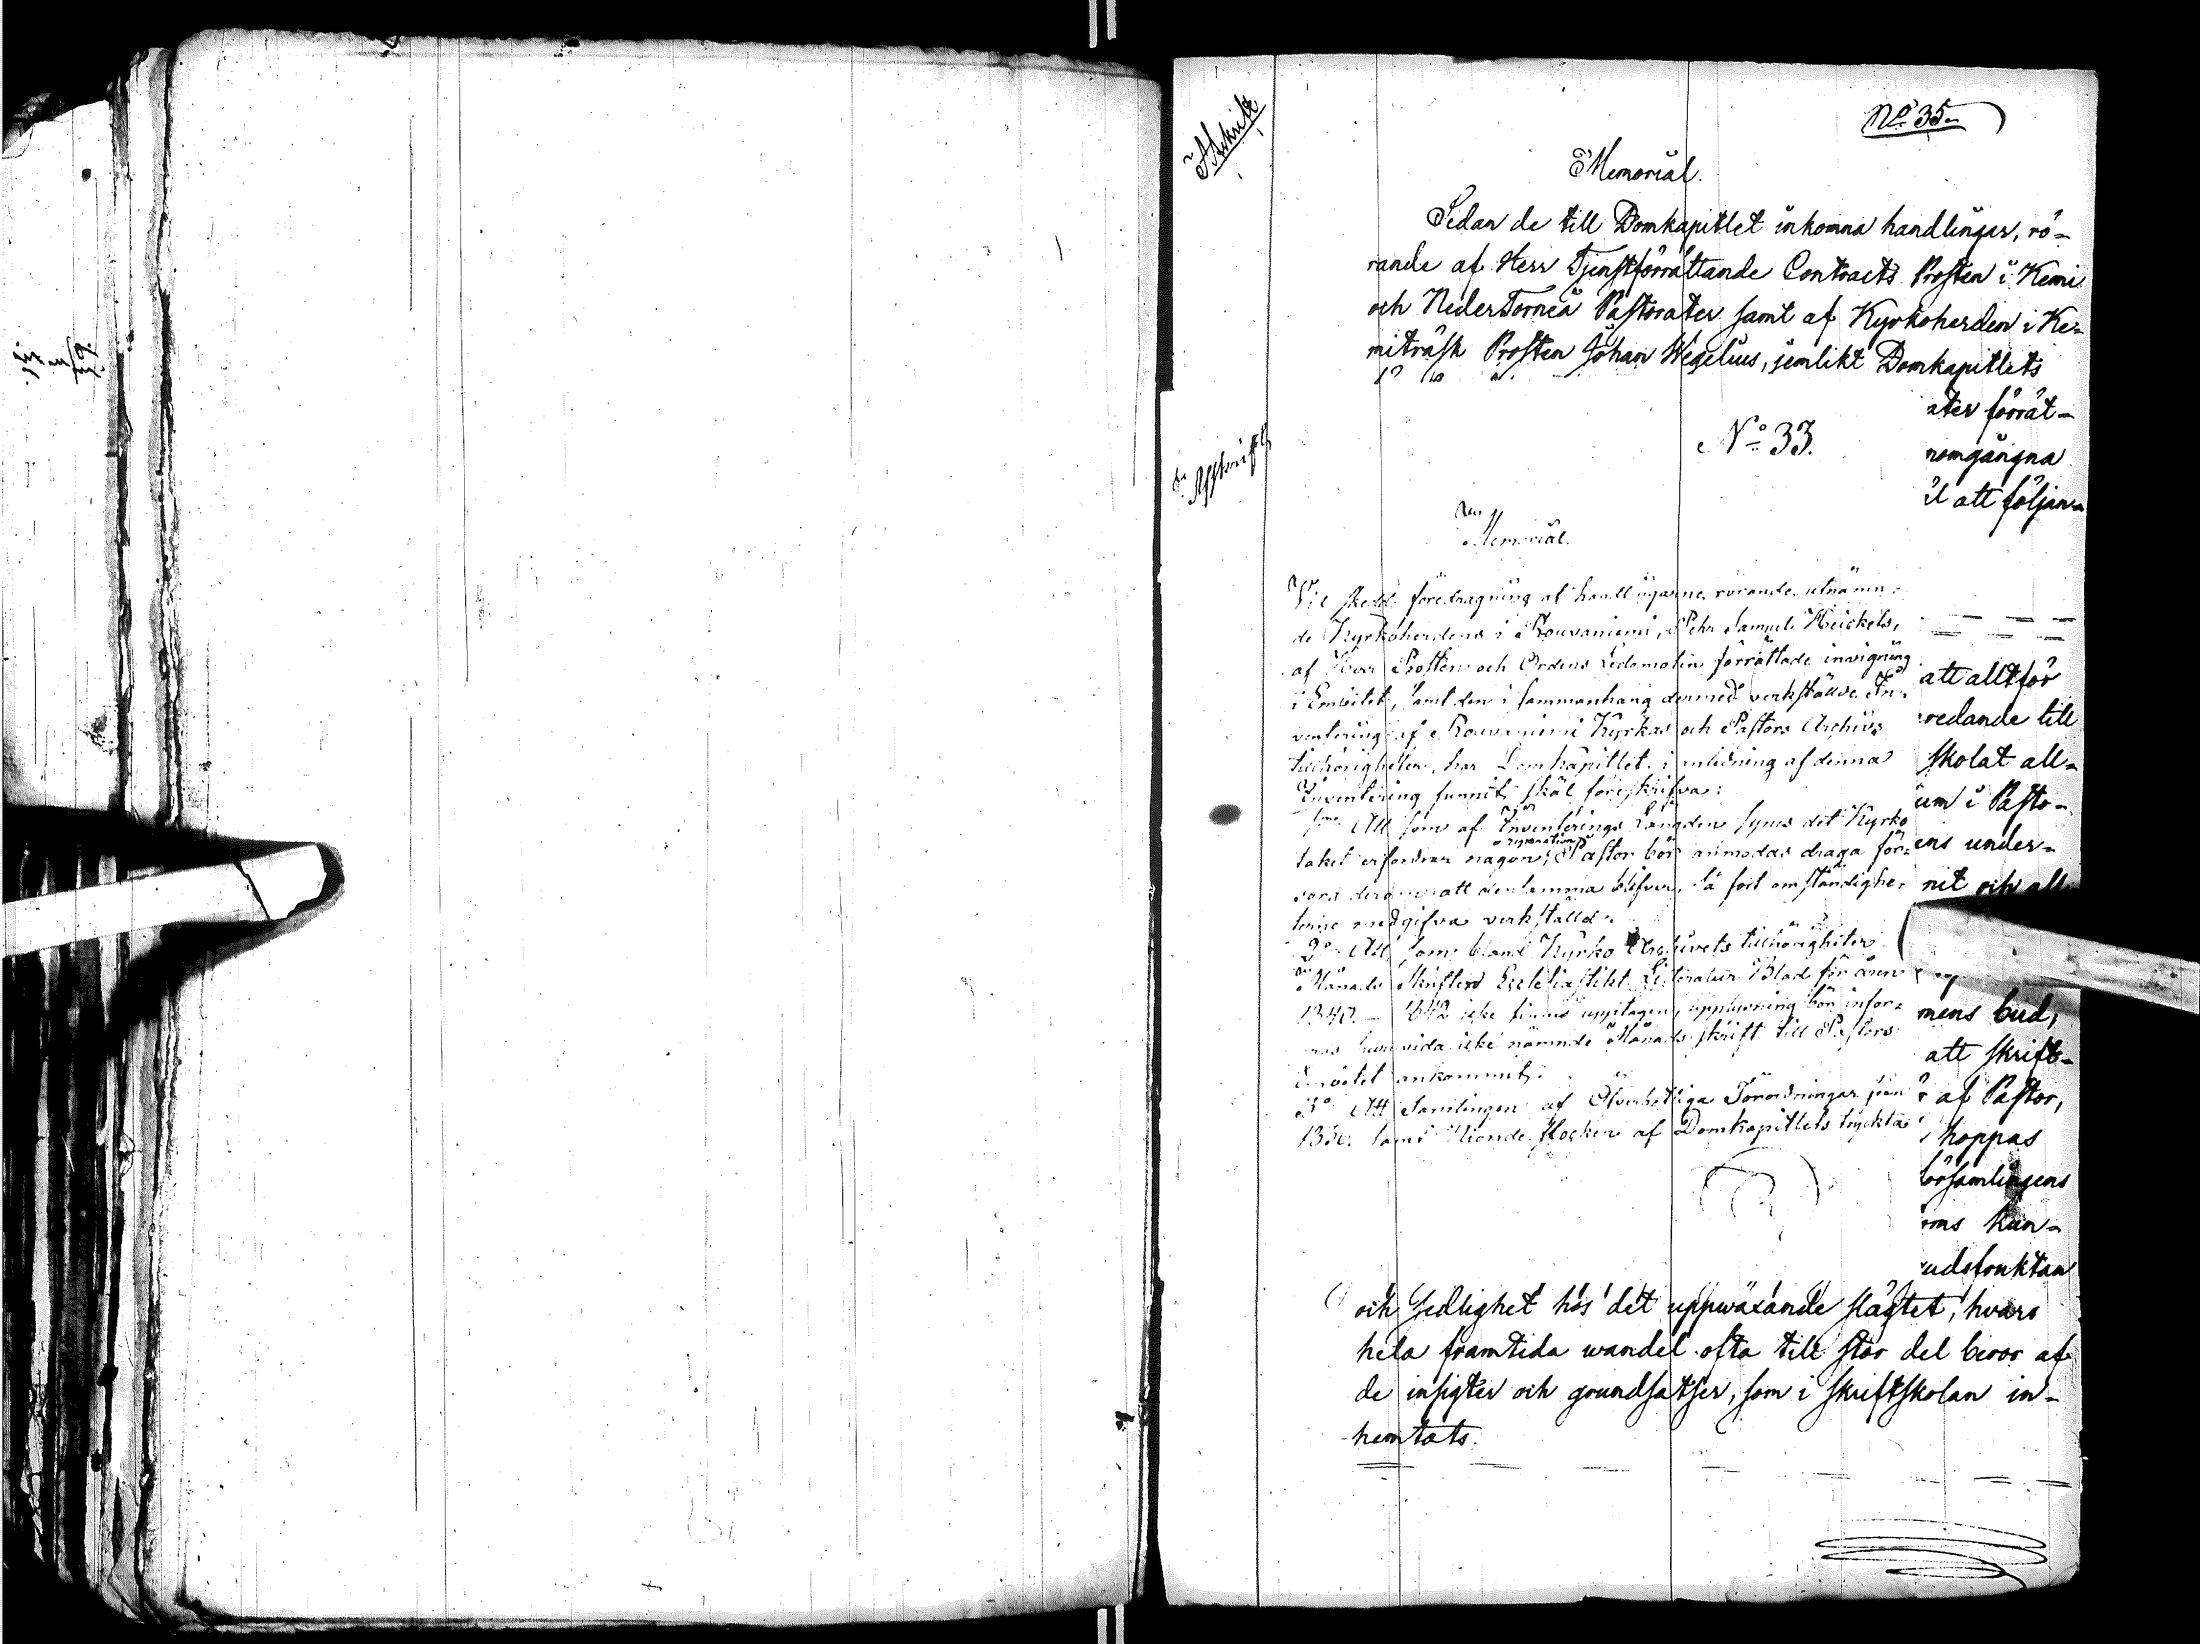 Afskrift
No 35.
Memorial.
Sedan de till Domkapitlet inkomna handlingar, rö-
rande af Herr Tjenstförrättande Contracts Prosten i Kemi
och NederTorneå Pastorater samt af Kyrkoherden i Ke-
miträsk Prosten Johan Wegelius, jemlikt Domkapitlets
ater förrät-
nomgångna
att följan-
Afskrift
No 33.
Memorial.
Vid skedd föredragning af handlingarne rörande utnämn-
de Kyrkoherdens i Rouvaniemi, Pehr Samuel Heickels,
af Herr Prosten och Ordens Ledamoten förrättade invigning
i Embetet, samt den i sammanhang dermed verkställde In-
ventering af Rouvaniemi Kyrkas och Pastors Archivs
tillhörigheter, har Domkapitlet i anledning af denna
Inventering funnit skäl föreskrifva:
1mo Att som af Inventerings Längden synes det Kyrko
taket erfordrar någon reparation, Pastor bör anmodas draga för-
sorg derom att densamma blifver, så fort omständighe-
terne medgifva verkställd.
2o Att, som bland Kyrko Archivets tillhörigheter
Månads Skriften Ecclesiastikt Litteratur Blad för åren
1840 - 1842 icke finnes upptagen, upplysning bör infor-
vida icke nämnde Månads skrift till Pastors
Embetet ankommit.
3o Att Samlingen af Öfverhetliga Förordningar från
samt Nionde Häcker af Domkapitlets tryckta
att alltför
redande till
skolat all-
um i Pasto-
ens under-
nit och all
mens bud,
att skrift-
af Pastor,
hoppas
församlingens
oms kun-
udsfruktan
och sedlighet hos det uppwäxande slägtet, hvars
hela framtida wandel ofta till stor del beror af
de insigter och grundsatser, som i skriftskolan in-
hemtats.